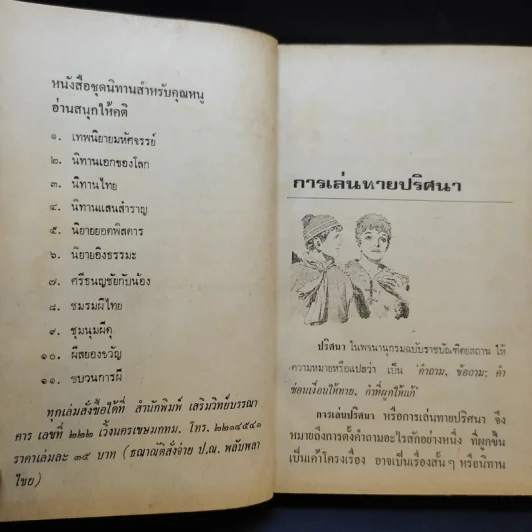 หนังสือชุดนิทานสำหรับคุณหนู
อ่านสนุกให้คติ
๑. เทพนิยายมหัศจรรย์
๒. นิทานเอกของโลก
๓. นิทานไทย
๔. นิทานแสนสำราญ
๕. นิยายยอดพิสดาร
๖. นิยายอิงธรรมะ
๗. ศรีธนญชัยกับน้อง
๘. ชมรมผีไทย
๙. ชุมนุมผีดุ
๑๐. ผีสยองขวัญ
๑๑. ขบวนการผี
ทุกเล่มสั่งซื้อได้ที่ สำนักพิมพ์ เสริมวิทย์บรรณา
คาร เลขที่ ๒๒๒ เวิ้งนครเขษมกทม. โทร. ๒๒๑๔๕๔๑
ราคาเล่มละ ๓๕ บาท (ธณาณัติสั่งจ่าย ป.ณ. พลับพลา
ไชย)
การเล่นทายปริศนา
ปริศนา ในพจนานุกรมฉบับราชบัณฑิตยสถาน ให้
ความหมายหรือแปลว่า เป็น 'คำถาม, ข้อถาม; คำ
ซ่อนเงื่อนให้ทาย, คำที่ผูกให้แก้'
การเล่นปริศนา หรือการเล่นทายปริศนา จึง
หมายถึงการตั้งคำถามอะไรสักอย่างหนึ่ง ที่ผูกขึ้น
เป็นเค้าโครงเรื่อง อาจเป็นเรื่องสั้นๆ หรือนิทาน